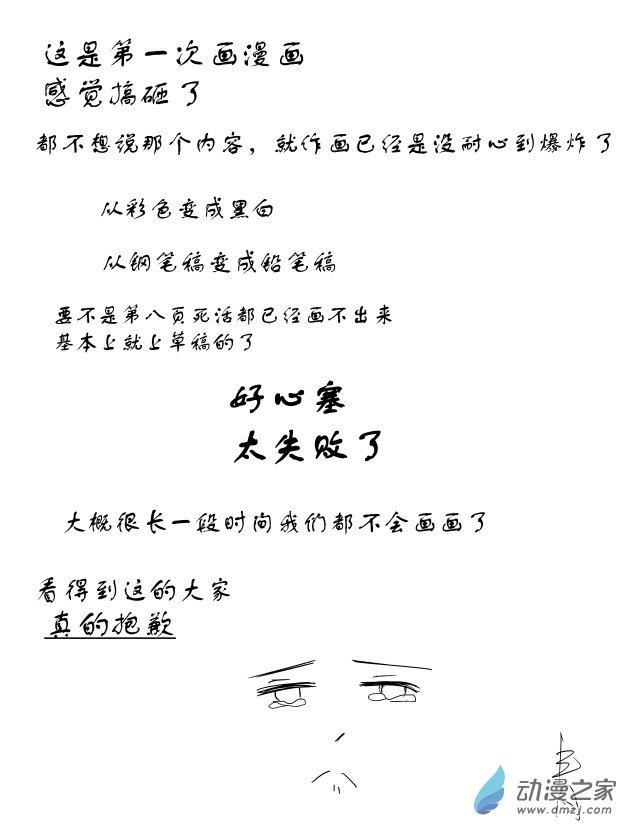 这是第一次画漫画
感觉搞砸了
都不想说那个内容，就作画已经是没耐心到爆炸了
从彩色变成黑白
从钢笔稿变成铅笔稿
要不是第八页死活都已经画不出来
基本上就上草稿的了
好心塞
太失败了
大概很长一段时间我们都不会画画了
看得到这的大家
真的抱歉
动漫之家
www.dmzj.com